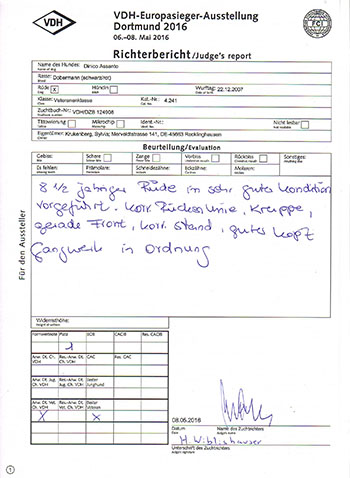 VDH
VDH-Europasieger-Ausstellung
Dortmund 2016
06.-08. Mai 2016
FCI
Richterbericht/Judge's report
Name des Hundes: Dirico Assanto
Rasse: Dobermann (schwarz/rot)
Rüde X Hündin Wurftag: 22.12.2007
Klasse: Veteranenklasse Kat.-Nr.: 4.241
Zuchtbuch-Nr.: VDH/DZB
Tätowierung Mikrochip Nicht lesbar
Eigentümer: Krukenberg, Sylvia; Recklinghausen
Beurteilung/Evaluation
Gebiss: Schere Zange Vorbiss Rückbiss Sonstiges:
Es fehlen: Prämolaren: Schneidezähne: Eckzähne: Molaren:
8 1/2 jähriger Rüde in sehr guter Kondition
vorgeführt. korr. Rückenlinie, Kruppe,
gerade Front, korr. Stand, guter Kopf
Gangwerk in Ordnung
Für den Aussteller
Widerristhöhe:
Formwertnote Platz BOB CACIB Res. CACIB
1
Anw. Dt. Ch. VDH Res.-Anw. Dt. Ch. VDH CAC Res. CAC
Anw. Dt. Jug. Ch. VDH Res.-Anw. Dt. Jug. Ch. VDH Bester Junghund
Anw. Dt. Vet. Ch. VDH Res.-Anw. Dt. Vet. Ch. VDH Bester Veteran
X X
08.05.2016
Datum Name des Zuchtrichters
H. Wiblishauser
Unterschrift des Zuchtrichters
1